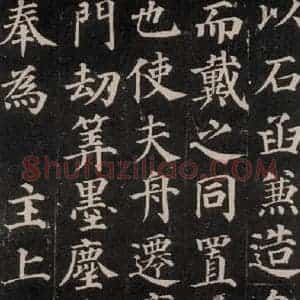 以石函兼造
而戴之同置
也使夫舟遷
門劫筭墨塵
奉為 主上
Shufaziliao.COM